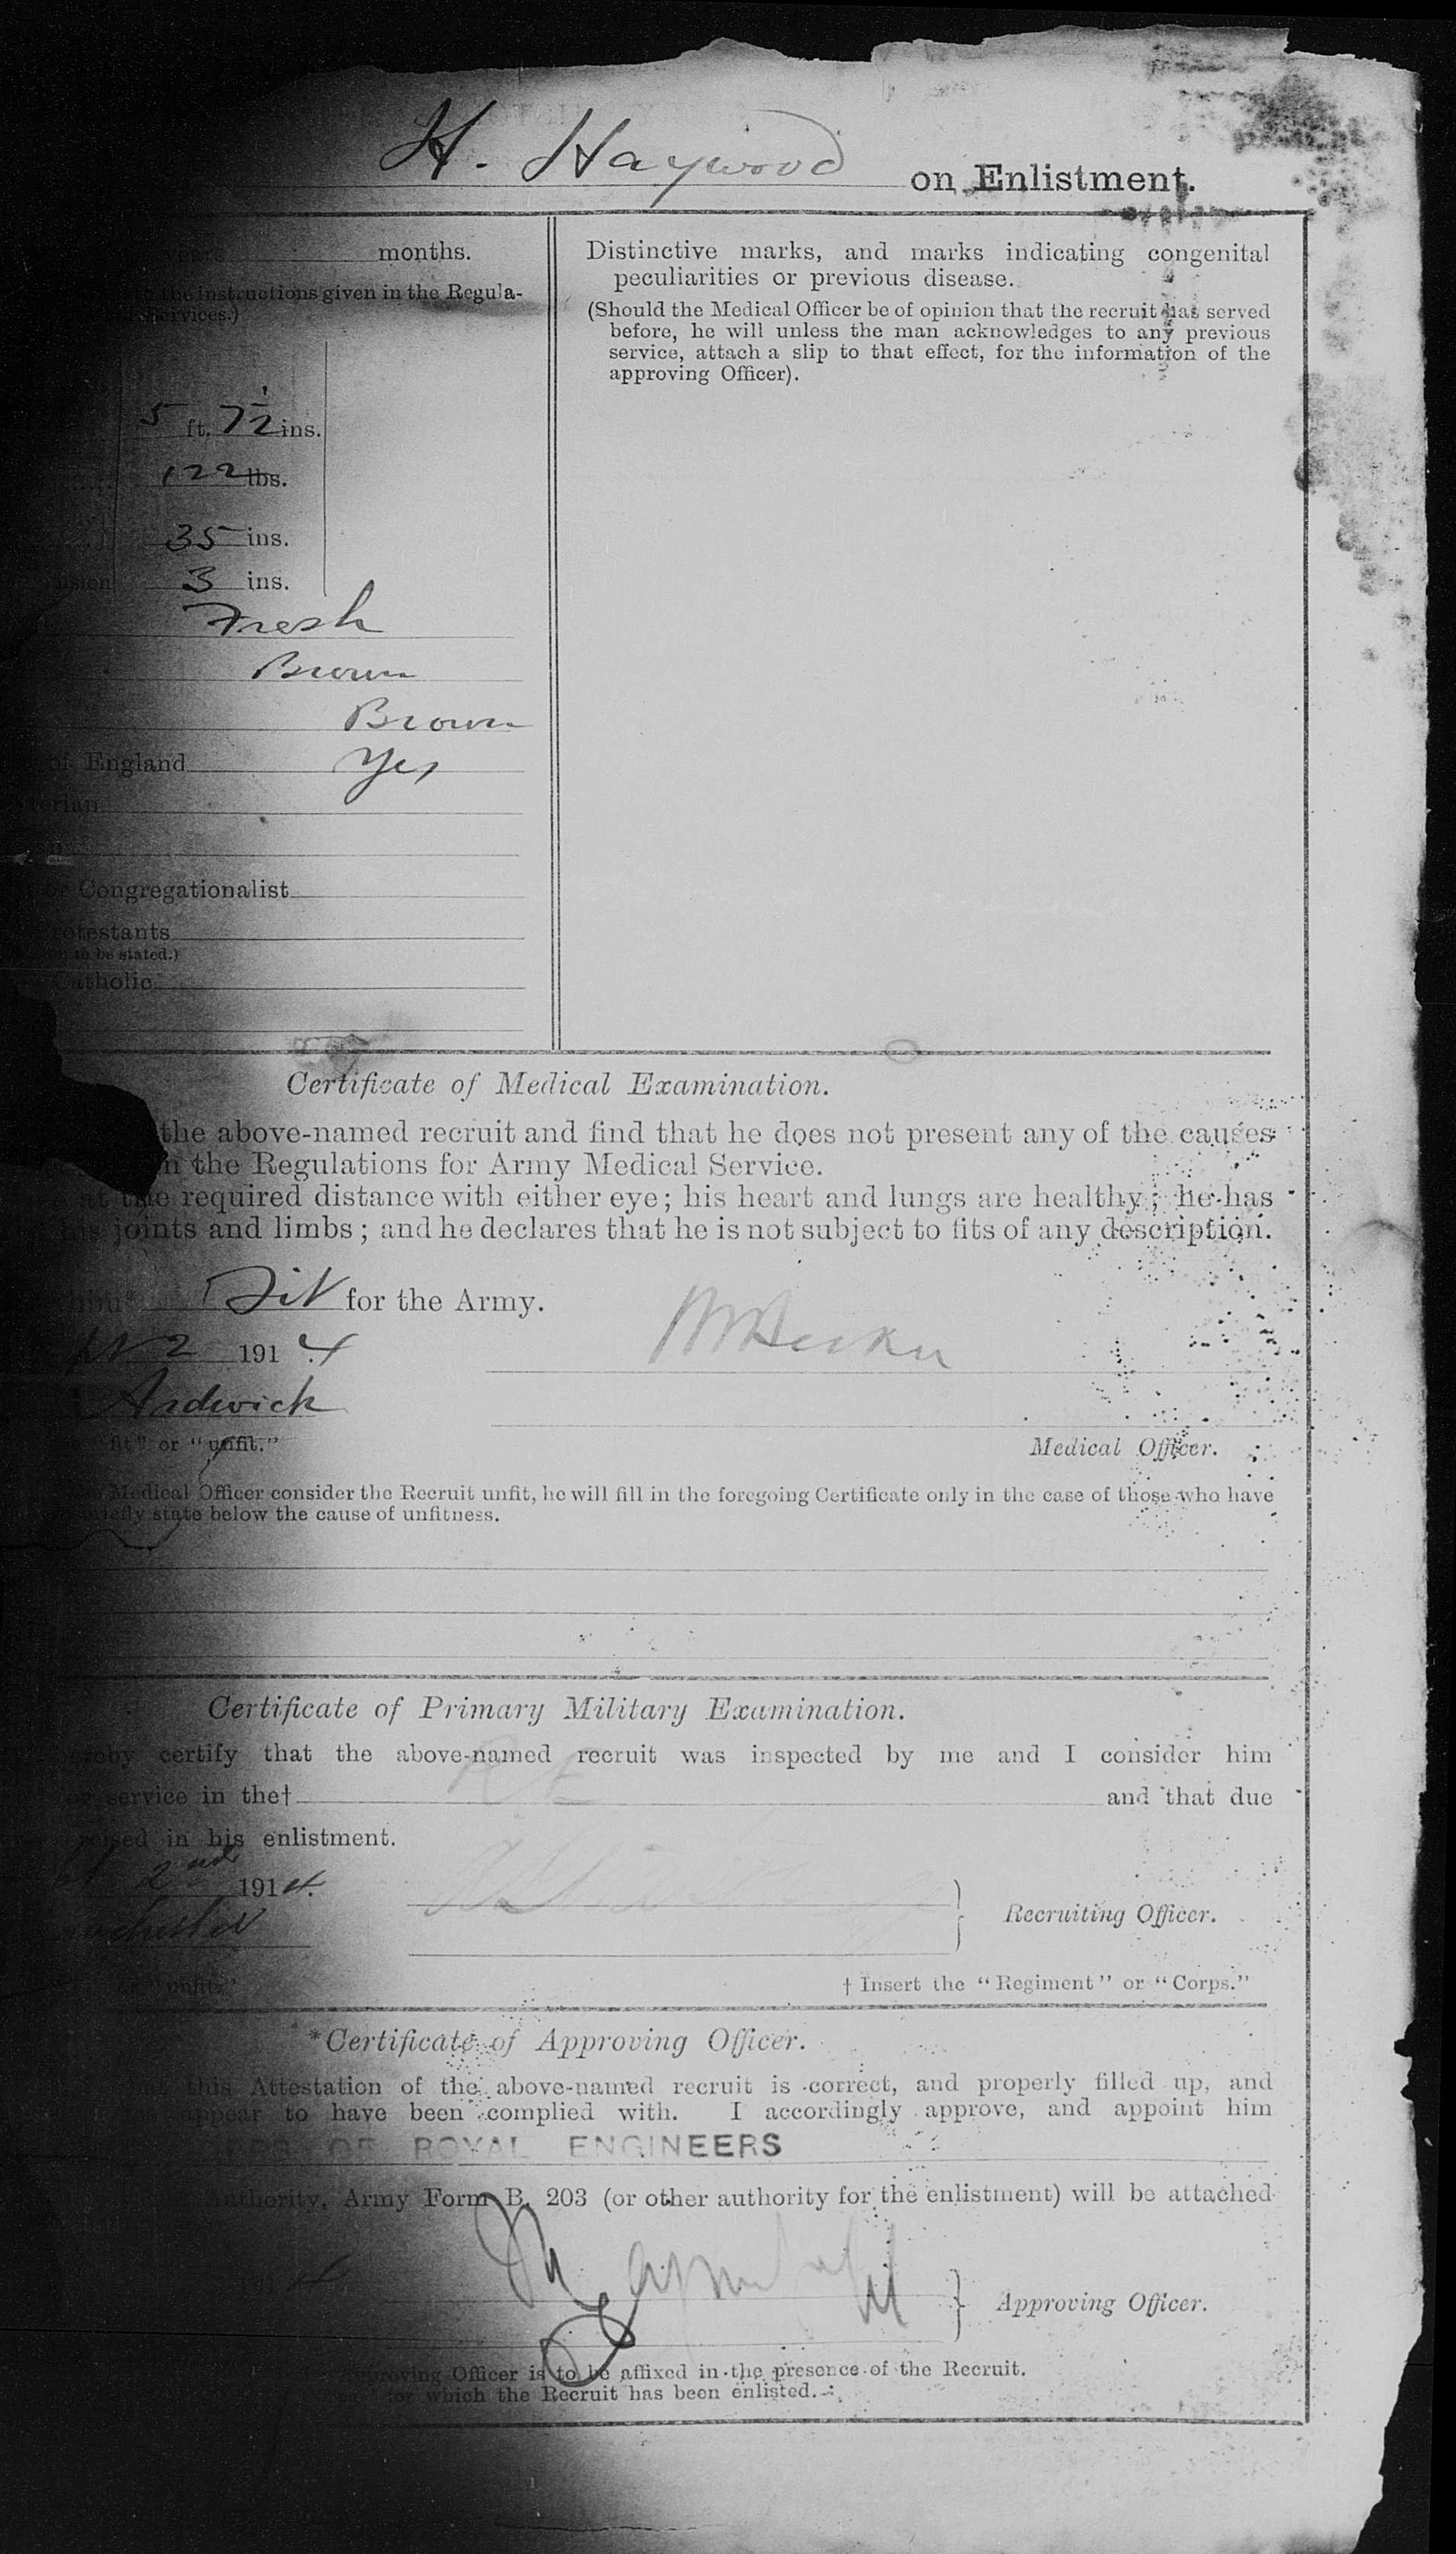 H. Haywood on Enlistment.
years months.
the Instructions given in the Regula-
Services.)
5 ft. 7½ ins.
122 lbs.
35 ins.
3 ins.
Fresh
Brown
Brown
of England Yes
or Congregationalist
Protestants
to be stated.)
Catholic
Distinctive marks, and marks indicating congenital
peculiarities or previous disease.
(Should the Medical Officer be of opinion that the recruit has served
before, he will unless the man acknowledges to any previous
service, attach a slip to that effect, for the information of the
approving Officer).
Certificate of Medical Examination.
the above-named recruit and find that he does not present any of the causes
in the Regulations for Army Medical Service.
at the required distance with either eye; his heart and lungs are healthy; he has
his joints and limbs; and he declares that he is not subject to fits of any description.
him Fit for the Army.
2 1914
Ardwick
"fit" or "unfit."
Medical Officer.
Medical Officer consider the Recruit unfit, he will fill in the foregoing Certificate only in the case of those who have
briefly state below the cause of unfitness.
Certificate of Primary Military Examination.
certify that the above-named recruit was inspected by me and I consider him
service in the† R E and that due
in his enlistment.
2nd 1914.
Recruiting Officer.
or "unfit"
† Insert the "Regiment" or "Corps."
*Certificate of Approving Officer.
this Attestation of the above-named recruit is correct, and properly filled up, and
appear to have been complied with. I accordingly approve, and appoint him
OF ROYAL ENGINEERS
authority, Army Form B. 203 (or other authority for the enlistment) will be attached
4
Approving Officer.
Approving Officer is to be affixed in the presence of the Recruit.
for which the Recruit has been enlisted.